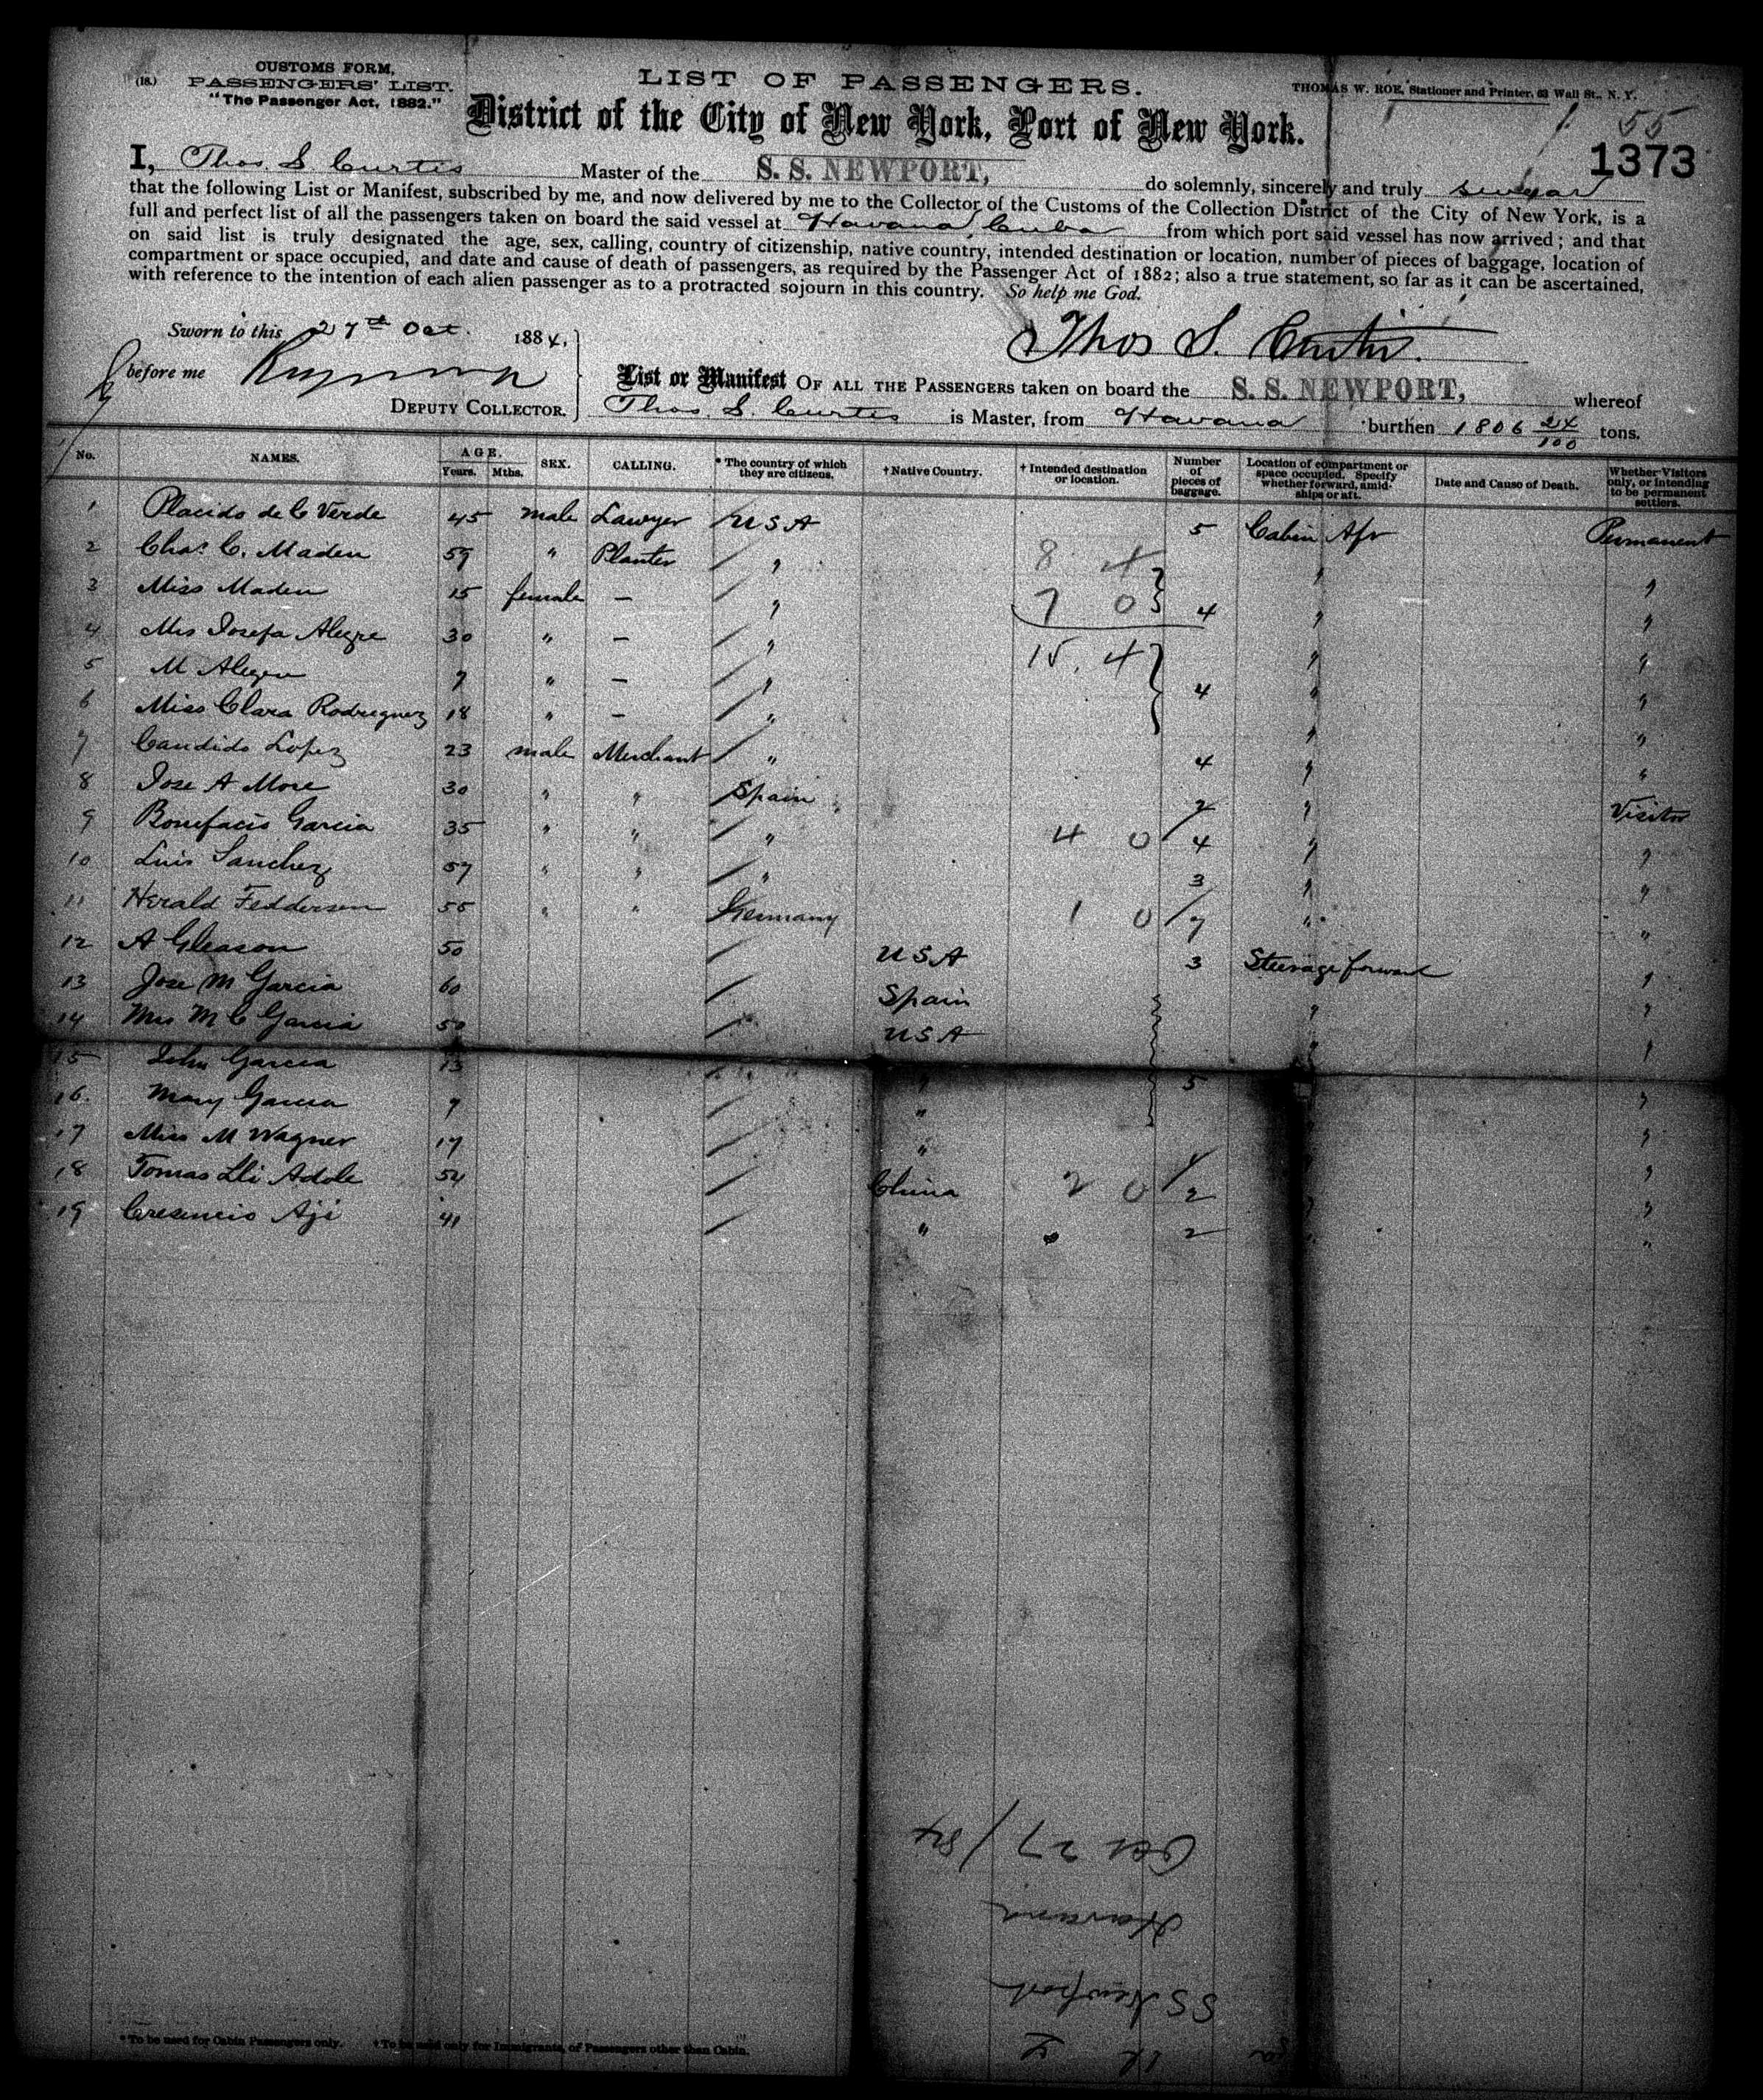 (18.)
CUSTOMS FORM,
PASSENGERS' LIST.
"The Passenger Act, 1882."
LIST OF PASSENGERS.
THOMAS W. ROE, Stationer and Printer, 63 Wall St., N. Y.
District of the City of New York, Port of New York.
55
1373
I, Thos. S. Curtis Master of the S. S. NEWPORT, do solemnly, sincerely and truly swear
that the following List or Manifest, subscribed by me, and now delivered by me to the Collector of the Customs of the Collection District of the City of New York, is a
full and perfect list of all the passengers taken on board the said vessel at Havana, Cuba from which port said vessel has now arrived; and that
on said list is truly designated the age, sex, calling, country of citizenship, native country, intended destination or location, number of pieces of baggage, location of
compartment or space occupied, and date and cause of death of passengers, as required by the Passenger Act of 1882; also a true statement, so far as it can be ascertained,
with reference to the intention of each alien passenger as to a protracted sojourn in this country. So help me God.
Sworn to this 27th Oct. 1884,
Thos S. Curtis.
before me
DEPUTY COLLECTOR.
List or Manifest OF ALL THE PASSENGERS taken on board the S. S. NEWPORT, whereof
Thos. S. Curtis is Master, from Havana burthen 1806 24/100 tons.
No. NAMES. AGE. Years. Mths. SEX. CALLING. * The country of which they are citizens. † Native Country. † Intended destination or location. Number of pieces of baggage. Location of compartment or space occupied. Specify whether forward, amidships or aft. Date and Cause of Death. Whether Visitors only, or intending to be permanent settlers.
1 Placido de C Verde 45 male Lawyer U S A 5 Cabin Aft Permanent
2 Chas. C. Maden 59 " Planter " 8 4 " "
3 Miss Maden 15 female — " 7 0 4 " "
4 Mrs Josefa Alegre 30 " — " 15. 4 " "
5 M Alegre 7 " — " 4 " "
6 Miss Clara Rodriguez 18 " — " " "
7 Candido Lopez 23 male Merchant " 4 " "
8 Jose A More 30 " " Spain 2 " Visitor
9 Bonefacio Garcia 35 " " " 4 0 4 " "
10 Luis Sanchez 57 " " " 3 " "
11 Herald Feddersen 55 " " Germany 1 0 7 " "
12 A Gleason 50 U S A 3 Steerage forward "
13 Jose M Garcia 60 Spain " "
14 Mrs M C Garcia 50 U S A " "
15 John Garcia 13 " 5 " "
16. Mary Garcia 7 " " "
17 Miss M Wagner 17 " 1 " "
18 Tomas Lli Adole 54 China 2 0 2 " "
19 Cresencio Aji 41 " 2 " "
Oct 27/84
Havana
SS Newport
* To be used for Cabin Passengers only. † To be used only for Immigrants, or Passengers other than Cabin.